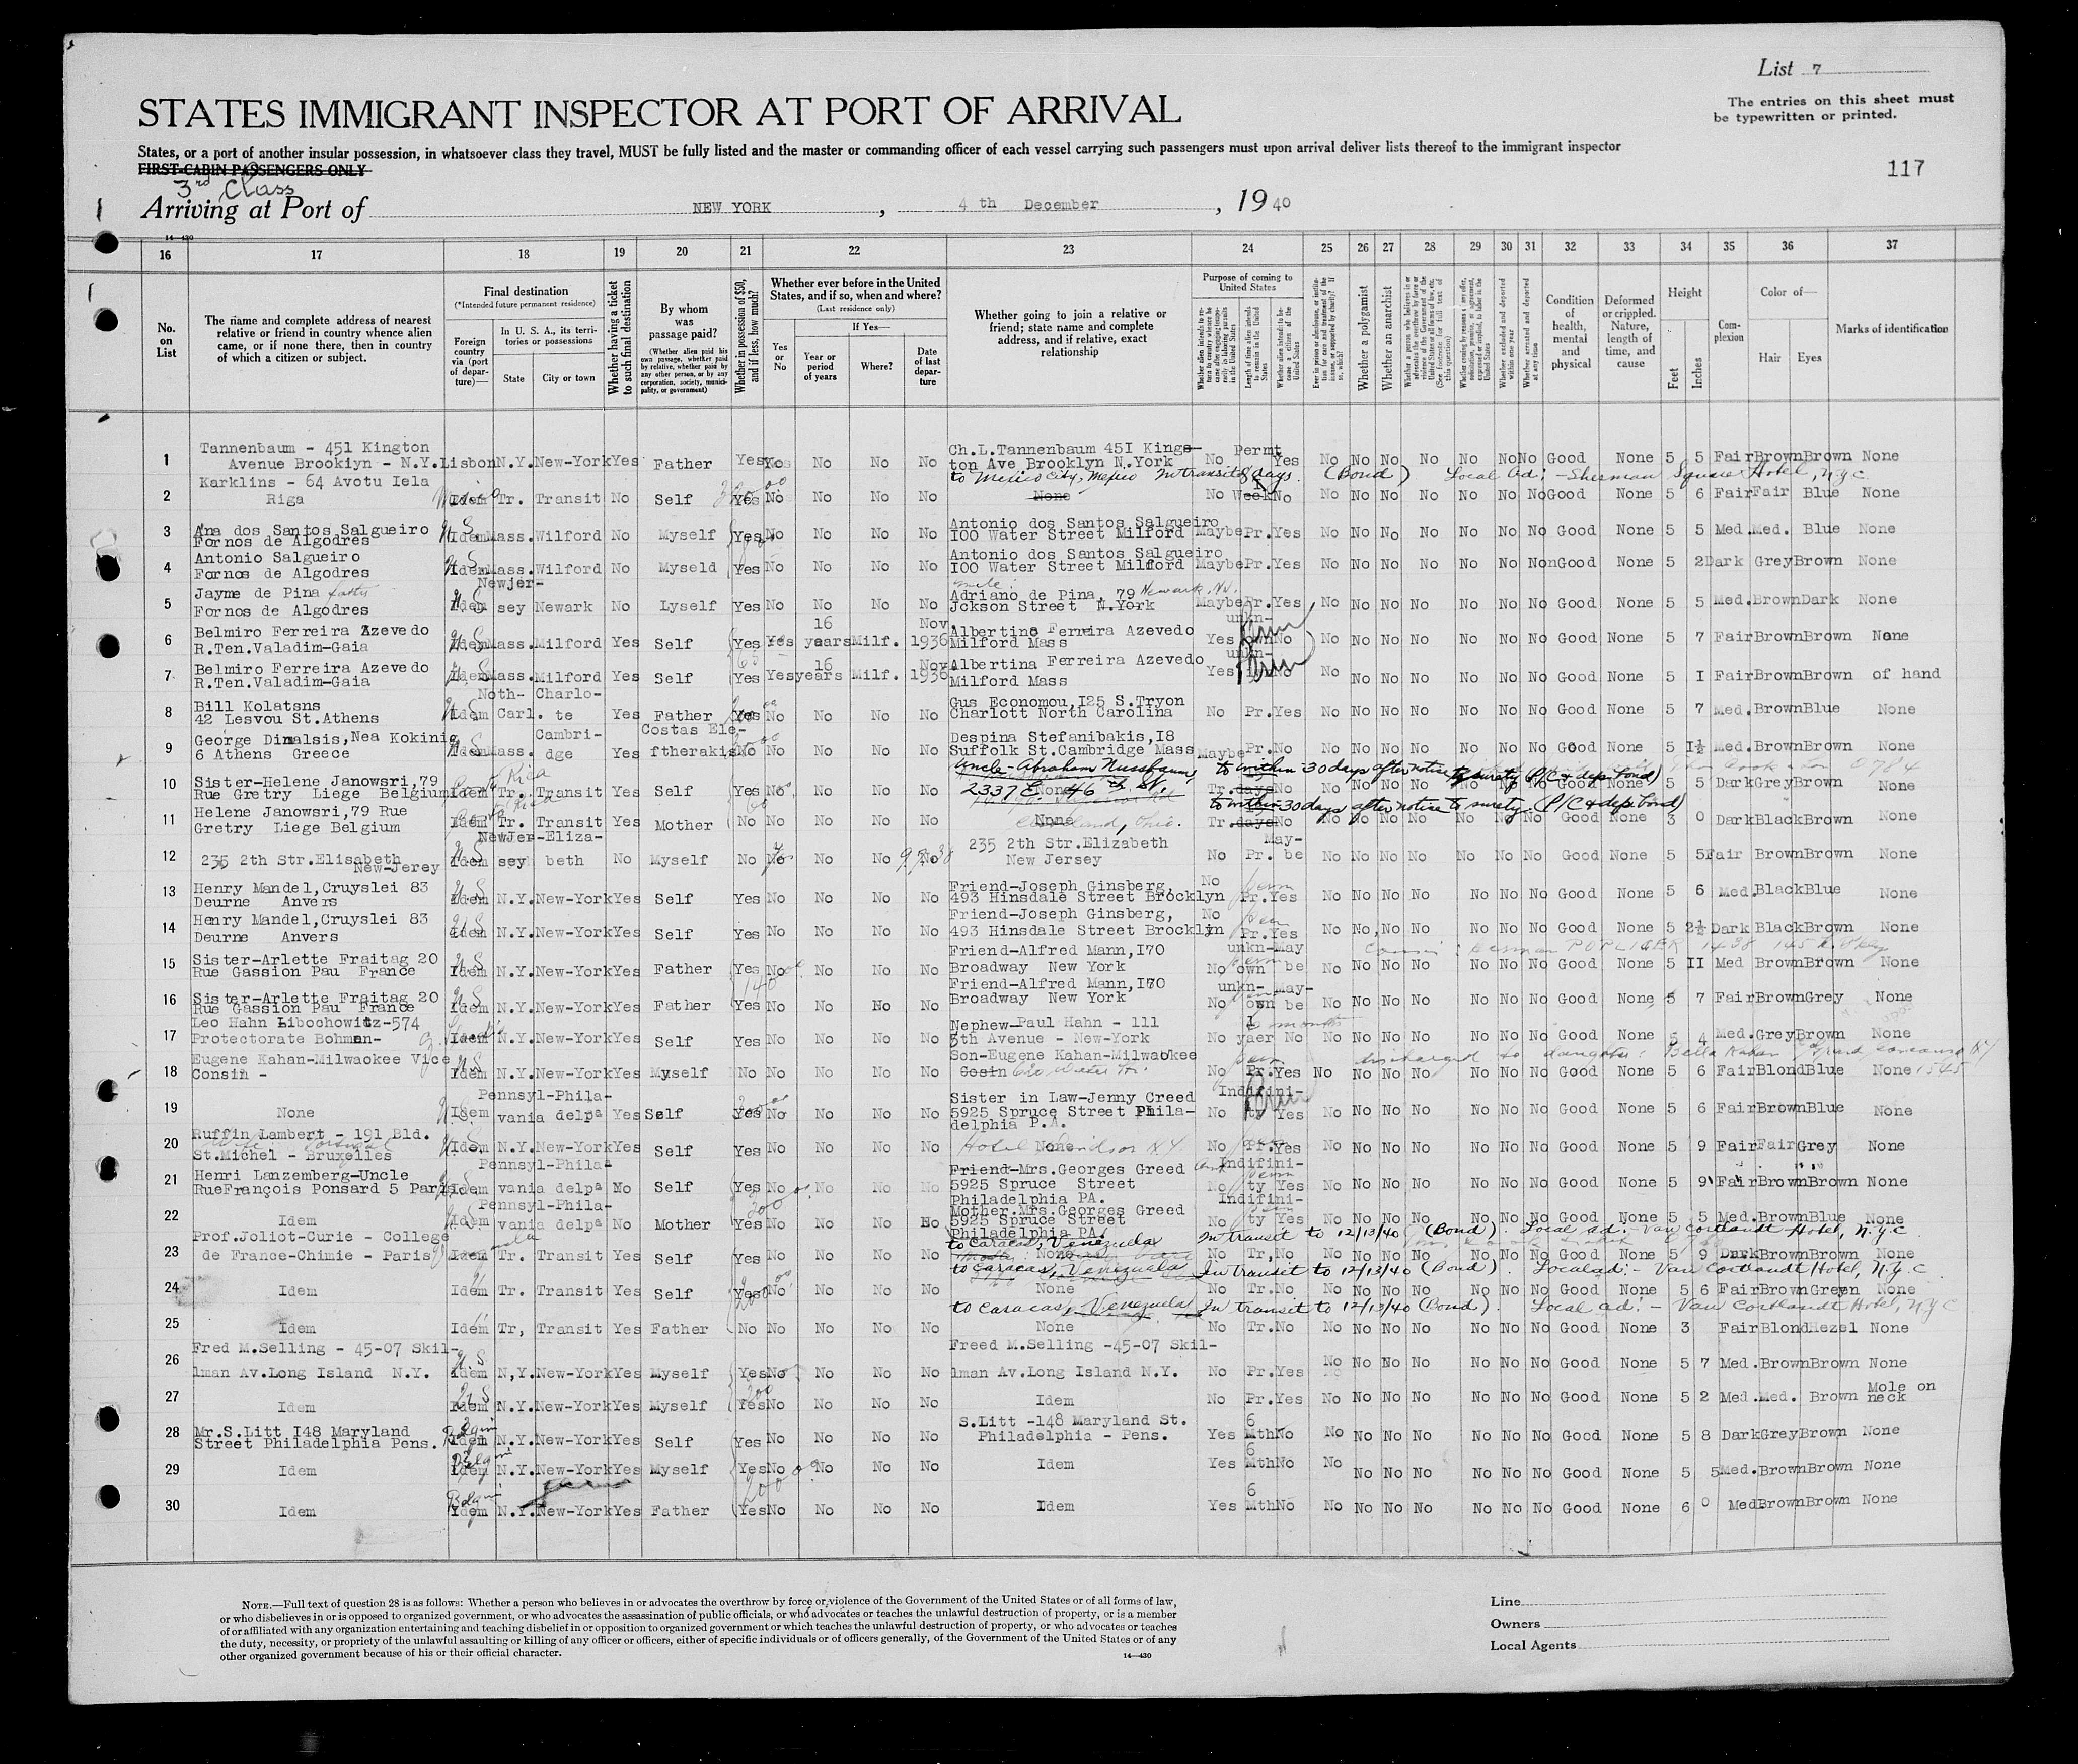 List 7
The entries on this sheet must
be typewritten or printed.
STATES IMMIGRANT INSPECTOR AT PORT OF ARRIVAL
States, or a port of another insular possession, in whatsoever class they travel, MUST be fully listed and the master or commanding officer of each vessel carrying such passengers must upon arrival deliver lists thereof to the immigrant inspector
FIRST-CABIN PASSENGERS ONLY
117
3rd Class
Arriving at Port of NEW YORK , 4 th December , 19 40
14—430
16 17 18 19 20 21 22 23 24 25 26 27 28 29 30 31 32 33 34 35 36 37
No. on List
The name and complete address of nearest relative or friend in country whence alien came, or if none there, then in country of which a citizen or subject.
Final destination
(*Intended future permanent residence)
Foreign country via (port of departure)—
In U. S. A., its territories or possessions
State City or town
Whether having a ticket to such final destination
By whom was passage paid?
(Whether alien paid his own passage, whether paid by relative, whether paid by any other person, or by any corporation, society, municipality, or government)
Whether in possession of $50, and if less, how much?
Whether ever before in the United States, and if so, when and where?
(Last residence only)
Yes or No
If Yes—
Year or period of years Where? Date of last departure
Whether going to join a relative or friend; state name and complete address, and if relative, exact relationship
Purpose of coming to United States
Whether a polygamist
Whether an anarchist
Condition of health, mental and physical
Deformed or crippled. Nature, length of time, and cause
Height
Feet Inches
Complexion
Color of—
Hair Eyes
Marks of identification
1 Tannenbaum - 451 Kington Ch.L.Tannenbaum 45I Kings- Permt
Avenue Brooklyn - N.Y. Lisbon N.Y. New-York Yes Father Yes No No No No ton Ave Brooklyn N.York No Yes No No No No No No No Good None 5 5 Fair Brown Brown None
to Mexico City, Mexico In transit 8 days (Bond) Local Ad: - Sherman Square Hotel, N.Y.C.
2 Karklins - 64 Avotu Iela
Riga Idem Tr. Transit No Self Yes No No No No None No Week No No No No No No No No Good None 5 6 Fair Fair Blue None
3 Ana dos Santos Salgueiro Antonio dos Santos Salgueiro
Fornos de Algodres Idem Mass. Wilford No Myself Yes No No No No I00 Water Street Milford Maybe Pr. Yes No No No No No No No Good None 5 5 Med. Med. Blue None
4 Antonio Salgueiro Antonio dos Santos Salgueiro
Fornos de Algodres Idem Mass. Wilford No Myseld Yes No No No No I00 Water Street Milford Maybe Pr. Yes No No No No No No Non Good None 5 2 Dark Grey Brown None
5 Jayme de Pina Newjer- Adriano de Pina, 79 Newark, N.J.
Fornos de Algodres Idem sey Newark No Lyself Yes No No No No Jokson Street N.York Maybe Pr. Yes No No No No No No No Good None 5 5 Med. Brown Dark None
6 Belmiro Ferreira Azevedo 16 Nov. Albertine Ferreira Azevedo unkn-
R.Ten.Valadim-Gaia Idem Mass. Milford Yes Self Yes Yes years Milf. 1936 Milford Mass Yes own No No No No No No No No Good None 5 7 Fair Brown Brown None
7 Belmiro Ferreira Azevedo 16 Nov. Albertina Ferreira Azevedo unkn-
R.Ten.Valadim-Gaia Idem Mass. Milford Yes Self Yes Yes years Milf. 1936 Milford Mass Yes No No No No No No No No Good None 5 I Fair Brown Brown of hand
8 Bill Kolatsns Noth- Charlo- Gus Economou,I25 S.Tryon
42 Lesvou St.Athens Idem Carl. te Yes Father Yes No No No No Charlott North Carolina No Pr. Yes No No No No No No No Good None 5 7 Med. Brown Blue None
9 George Dimalsis, Nea Kokinia Cambri- Costas Ele- Despina Stefanibakis,I8
6 Athens Greece Idem Mass. dge Yes ftherakis No No No No No Suffolk St.Cambridge Mass Maybe Pr. No No No No No No No No Good None 5 I½ Med. Brown Brown None
Uncle - Abraham Nussbaum, to within 30 days after notice to surety (P/C & dep. bond)
10 Sister-Helene Janowsri,79 2337 E. 46th St.
Rue Gretry Liege Belgium Idem Tr. Transit Yes Self Yes No No No No None Tr. days No No No No No No No No Good None 5 5 Dark Grey Brown None
to within 30 days after notice to surety (P/C & dep. bond)
11 Helene Janowsri,79 Rue Cleveland, Ohio.
Gretry Liege Belgium Idem Tr. Transit Yes Mother No No No No No None Tr. days No No No No No No No No Good None 3 0 Dark Black Brown None
12 NewJer- Eliza- 235 2th Str.Elizabeth May-
235 2th Str.Elisabeth New-Jerey Idem sey beth No Myself No No No No New Jersey No Pr. be No No No No No No No Good None 5 5 Fair Brown Brown None
13 Henry Mandel,Cruyslei 83 Friend-Joseph Ginsberg, No
Deurne Anvers Idem N.Y. New-York Yes Self Yes No No No No 493 Hinsdale Street Brocklyn Pr. Yes No No No No No No No Good None 5 6 Med. Black Blue None
14 Henry Mandel,Cruyslei 83 Friend-Joseph Ginsberg, No
Deurne Anvers Idem N.Y. New-York Yes Self Yes No No No No 493 Hinsdale Street Brocklyn Pr. Yes No No No No No No No Good None 5 2½ Dark Black Brown None
15 Sister-Arlette Fraitag 20 Friend-Alfred Mann,I70 unkn- May
Rue Gassion Pau France Idem N.Y. New-York Yes Father Yes No No No No Broadway New York No own be No No No No No No No Good None 5 II Med Brown Brown None
16 Sister-Arlette Fraitag 20 Friend-Alfred Mann,I70 unkn- May-
Rue Gassion Pau France Idem N.Y. New-York Yes Father Yes No No No No Broadway New York No own be No No No No No No No Good None 5 7 Fair Brown Grey None
17 Leo Hahn Libochowitz-574 Nephew-Paul Hahn - 111 I
Protectorate Bohmen- Idem N.Y. New-York Yes Self Yes No No No No 5th Avenue - New-York No yaer No No No No No No No No Good None 5 4 Med. Grey Brown None
18 Eugene Kahan-Milwaokee Vice Son-Eugene Kahan-Milwaokee discharged to daugter: Bella Kahan
Consin - Idem N.Y. New-York Yes Myself No No No No No Cosin 620 Water St. No Pr. Yes No No No No No No No Good None 5 6 Fair Blond Blue None 1545
19 Pennsyl- Phila- Sister in Law-Jenny Creed Indifini-
None Idem vania delpa Yes Self Yes No No No No 5925 Spruce Street Phila- No ty Yes No No No No No No No Good None 5 6 Fair Brown Blue None
delphia P.A.
20 Ruffin Lambert - 191 Bld.
St.Michel - Bruxelles Idem N.Y. New-York Yes Self Yes No No No No None No Pr. Yes No No No No No No No Good None 5 9 Fair Fair Grey None
21 Henri Lanzemberg-Uncle Pennsyl- Phila- Friend-Mrs.Georges Greed Indifini-
RueFrançois Ponsard 5 Paris Idem vania delpa No Self Yes No No No No 5925 Spruce Street No ty Yes No No No No No No No Good None 5 9 Fair Brown Brown None
Philadelphia PA.
22 Pennsyl- Phila- Mother.Mrs.Georges Greed Indifini-
Idem Idem vania delpa No Mother Yes No No No No 5925 Spruce Street No ty Yes No No No No No No No Good None 5 5 Med. Brown Blue None
Philadelphia PA.
to Caracas, Venezuela In transit to 12/13/40 (Bond). Local ad: - Van Cortlandt Hotel, N.Y.C.
23 Prof.Joliot-Curie - College
de France-Chimie - Paris Idem Tr. Transit Yes Self Yes No No No No None No Tr, No No No No No No No No Good None 5 9 Dark Brown Brown None
to Caracas, Venezuela In transit to 12/13/40 (Bond). Local ad: - Van Cortlandt Hotel, N.Y.C.
24 Idem Idem Tr. Transit Yes Self Yes No No No No None No Tr. No No No No No No No No Good None 5 6 Fair Brown Green None
to Caracas, Venezuela In transit to 12/13/40 (Bond). Local ad: - Van Cortlandt Hotel, N.Y.C
25 Idem Idem Tr, Transit Yes Father No No No No No None No Tr. No No No No No No No No Good None 3 Fair Blond Hezel None
26 Fred M.Selling - 45-07 Skil- Freed M.Selling -45-07 Skil-
lman Av.Long Island N.Y. Idem N,Y. New-York Yes Myself Yes No No No No lman Av.Long Island N.Y. No Pr. Yes No No No No No No No Good None 5 7 Med. Brown Brown None
27 Idem Idem N.Y. New-York Yes Myself Yes No No No No Idem No Pr. Yes No No No No No No No Good None 5 2 Med. Med. Brown Mole on neck
28 Mr.S.Litt I48 Maryland S.Litt -148 Maryland St. 6
Street Philadelphia Pens. Idem N.Y. New-York Yes Self Yes No No No No Philadelphia - Pens. Yes Mth No No No No No No No No Good None 5 8 Dark Grey Brown None
29 Idem Idem N.Y. New-York Yes Myself Yes No No No No Idem Yes 6 Mth No No No No No No No No Good None 5 5 Med. Brown Brown None
30 Idem Idem N.Y. New-York Yes Father Yes No No No No Idem Yes 6 Mth No No No No No No No No Good None 6 0 Med Brown Brown None
NOTE.—Full text of question 28 is as follows: Whether a person who believes in or advocates the overthrow by force or violence of the Government of the United States or of all forms of law,
or who disbelieves in or is opposed to organized government, or who advocates the assassination of public officials, or who advocates or teaches the unlawful destruction of property, or is a member
of or affiliated with any organization entertaining and teaching disbelief in or opposition to organized government or which teaches the unlawful destruction of property, or who advocates or teaches
the duty, necessity, or propriety of the unlawful assaulting or killing of any officer or officers, either of specific individuals or of officers generally, of the Government of the United States or of any
other organized government because of his or their official character.
14—430
Line
Owners
Local Agents